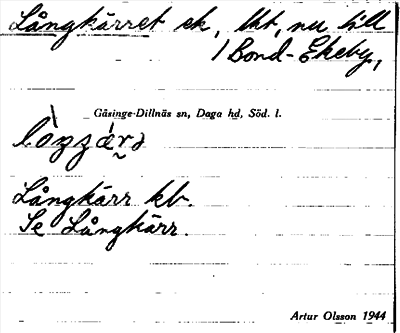 Långkärret ek, tkt, nu till
1 Bond-Ekeby,
Gåsinge-Dillnäs sn, Daga hd, Söd. l.
Långkärr kb.
Se Långkärr.
Artur Olsson 1944